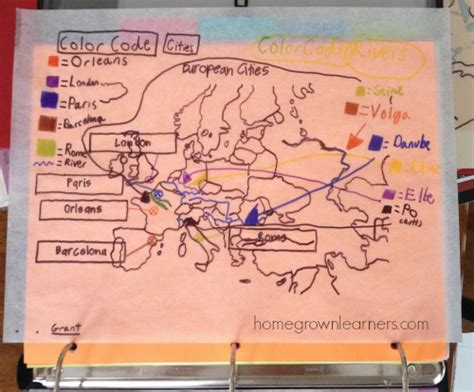 Color Code Cities
■ = Orleans
■ = London
■ = Paris
■ = Barcelona
■ = Rome
= River
European Cities
Color Code Rivers
■ = Seine
■ = Volga
■ = Danube
■ = Rhine
■ = Elbe
■ = Po
London
Paris
Orleans
Barcelona
Rome
Grant
homegrownlearners.com